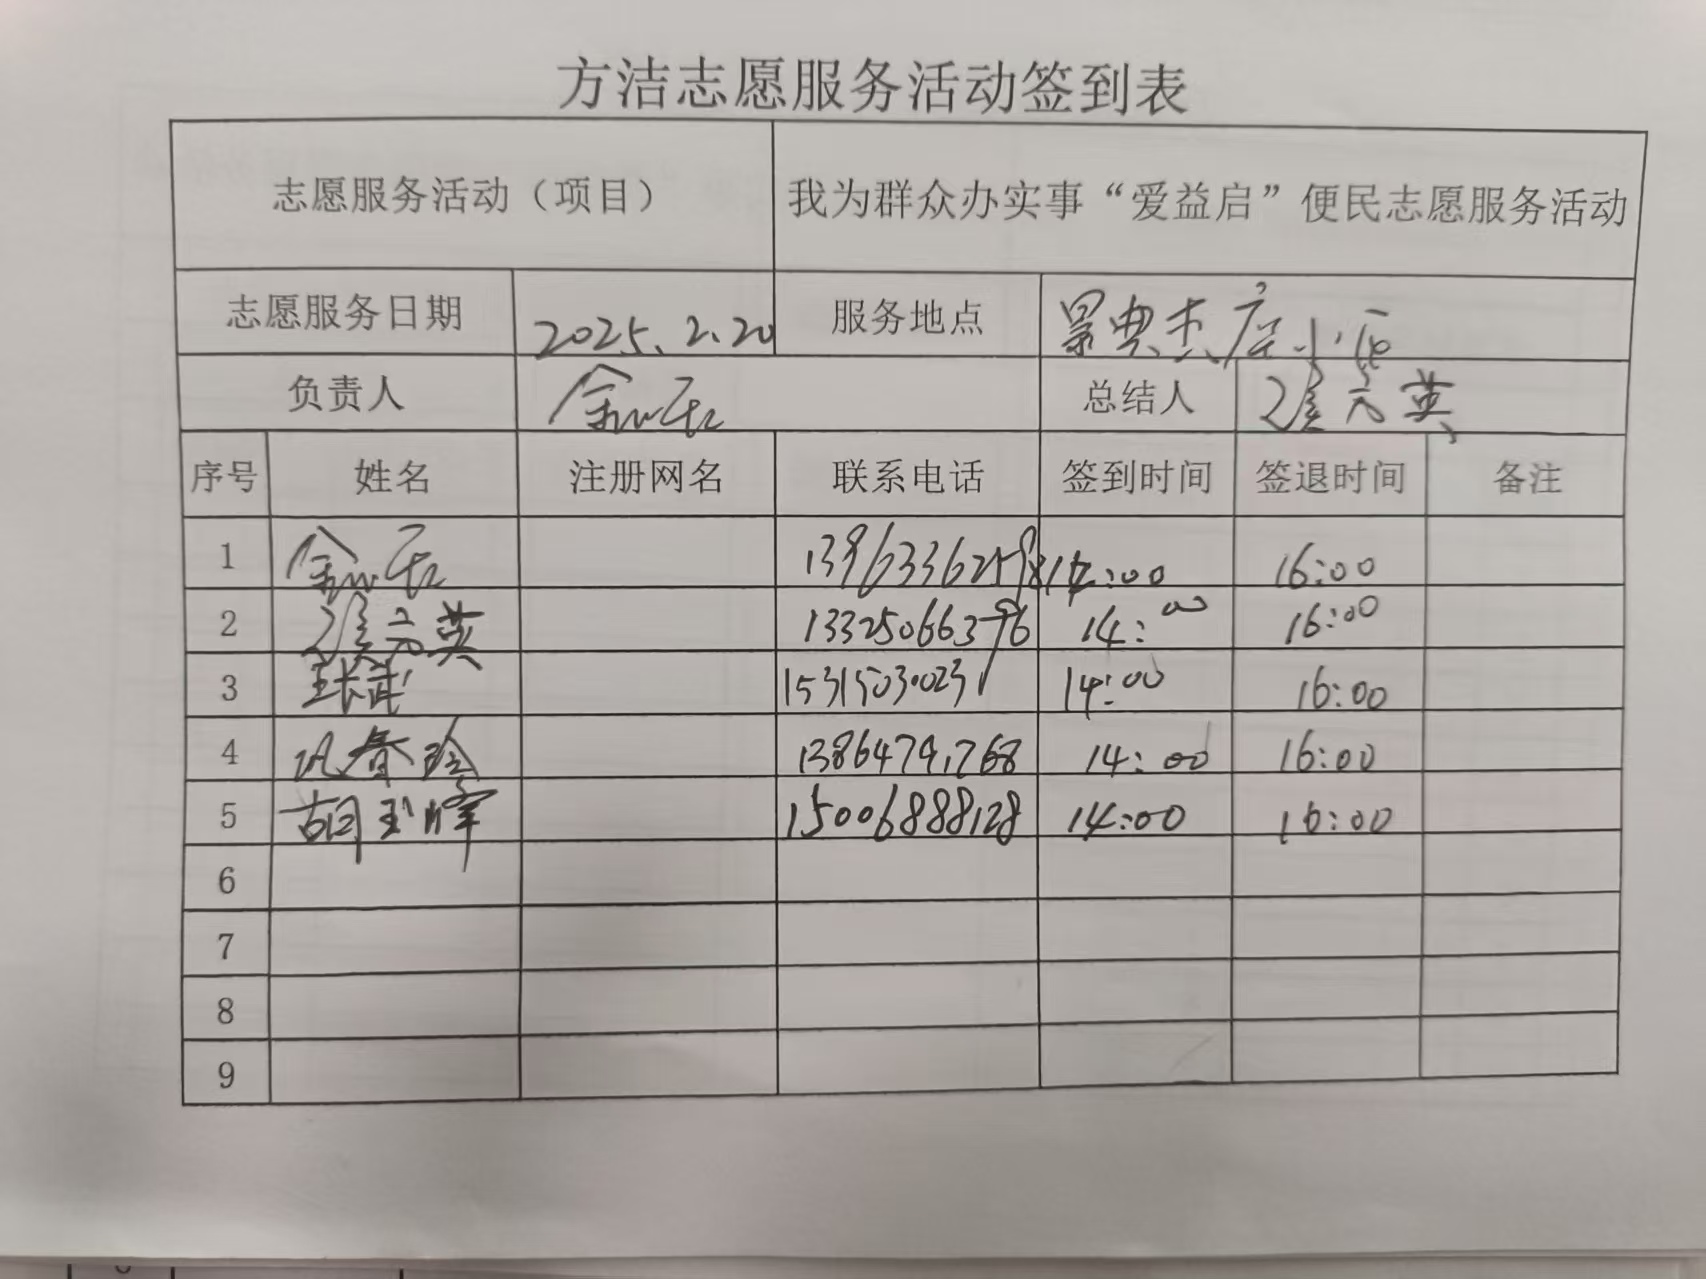 方洁志愿服务活动签到表
志愿服务活动（项目） 我为群众办实事“爱益启”便民志愿服务活动
志愿服务日期 2025.2.20 服务地点 景典 小区
负责人 总结人 英
序号 姓名 注册网名 联系电话 签到时间 签退时间 备注
1 14:00 16:00
2 英 13325066376 14:00 16:00
3 14:00 16:00
4 春玲 13864791768 14:00 16:00
5 胡玉峰 15006888128 14:00 16:00
6
7
8
9